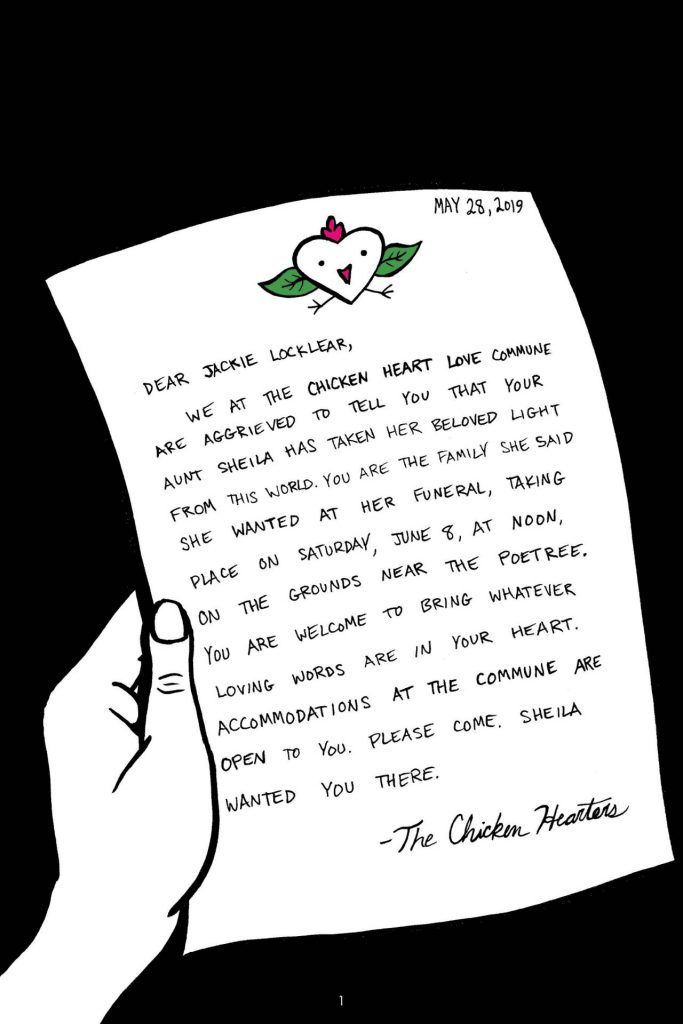 MAY 28, 2019
DEAR JACKIE LOCKLEAR,
WE AT THE CHICKEN HEART LOVE COMMUNE
ARE AGGRIEVED TO TELL YOU THAT YOUR
AUNT SHEILA HAS TAKEN HER BELOVED LIGHT
FROM THIS WORLD. YOU ARE THE FAMILY SHE SAID
SHE WANTED AT HER FUNERAL, TAKING
PLACE ON SATURDAY, JUNE 8, AT NOON,
ON THE GROUNDS NEAR THE POETREE.
YOU ARE WELCOME TO BRING WHATEVER
LOVING WORDS ARE IN YOUR HEART.
ACCOMMODATIONS AT THE COMMUNE ARE
OPEN TO YOU. PLEASE COME. SHEILA
WANTED YOU THERE.
-The Chicken Hearters
1